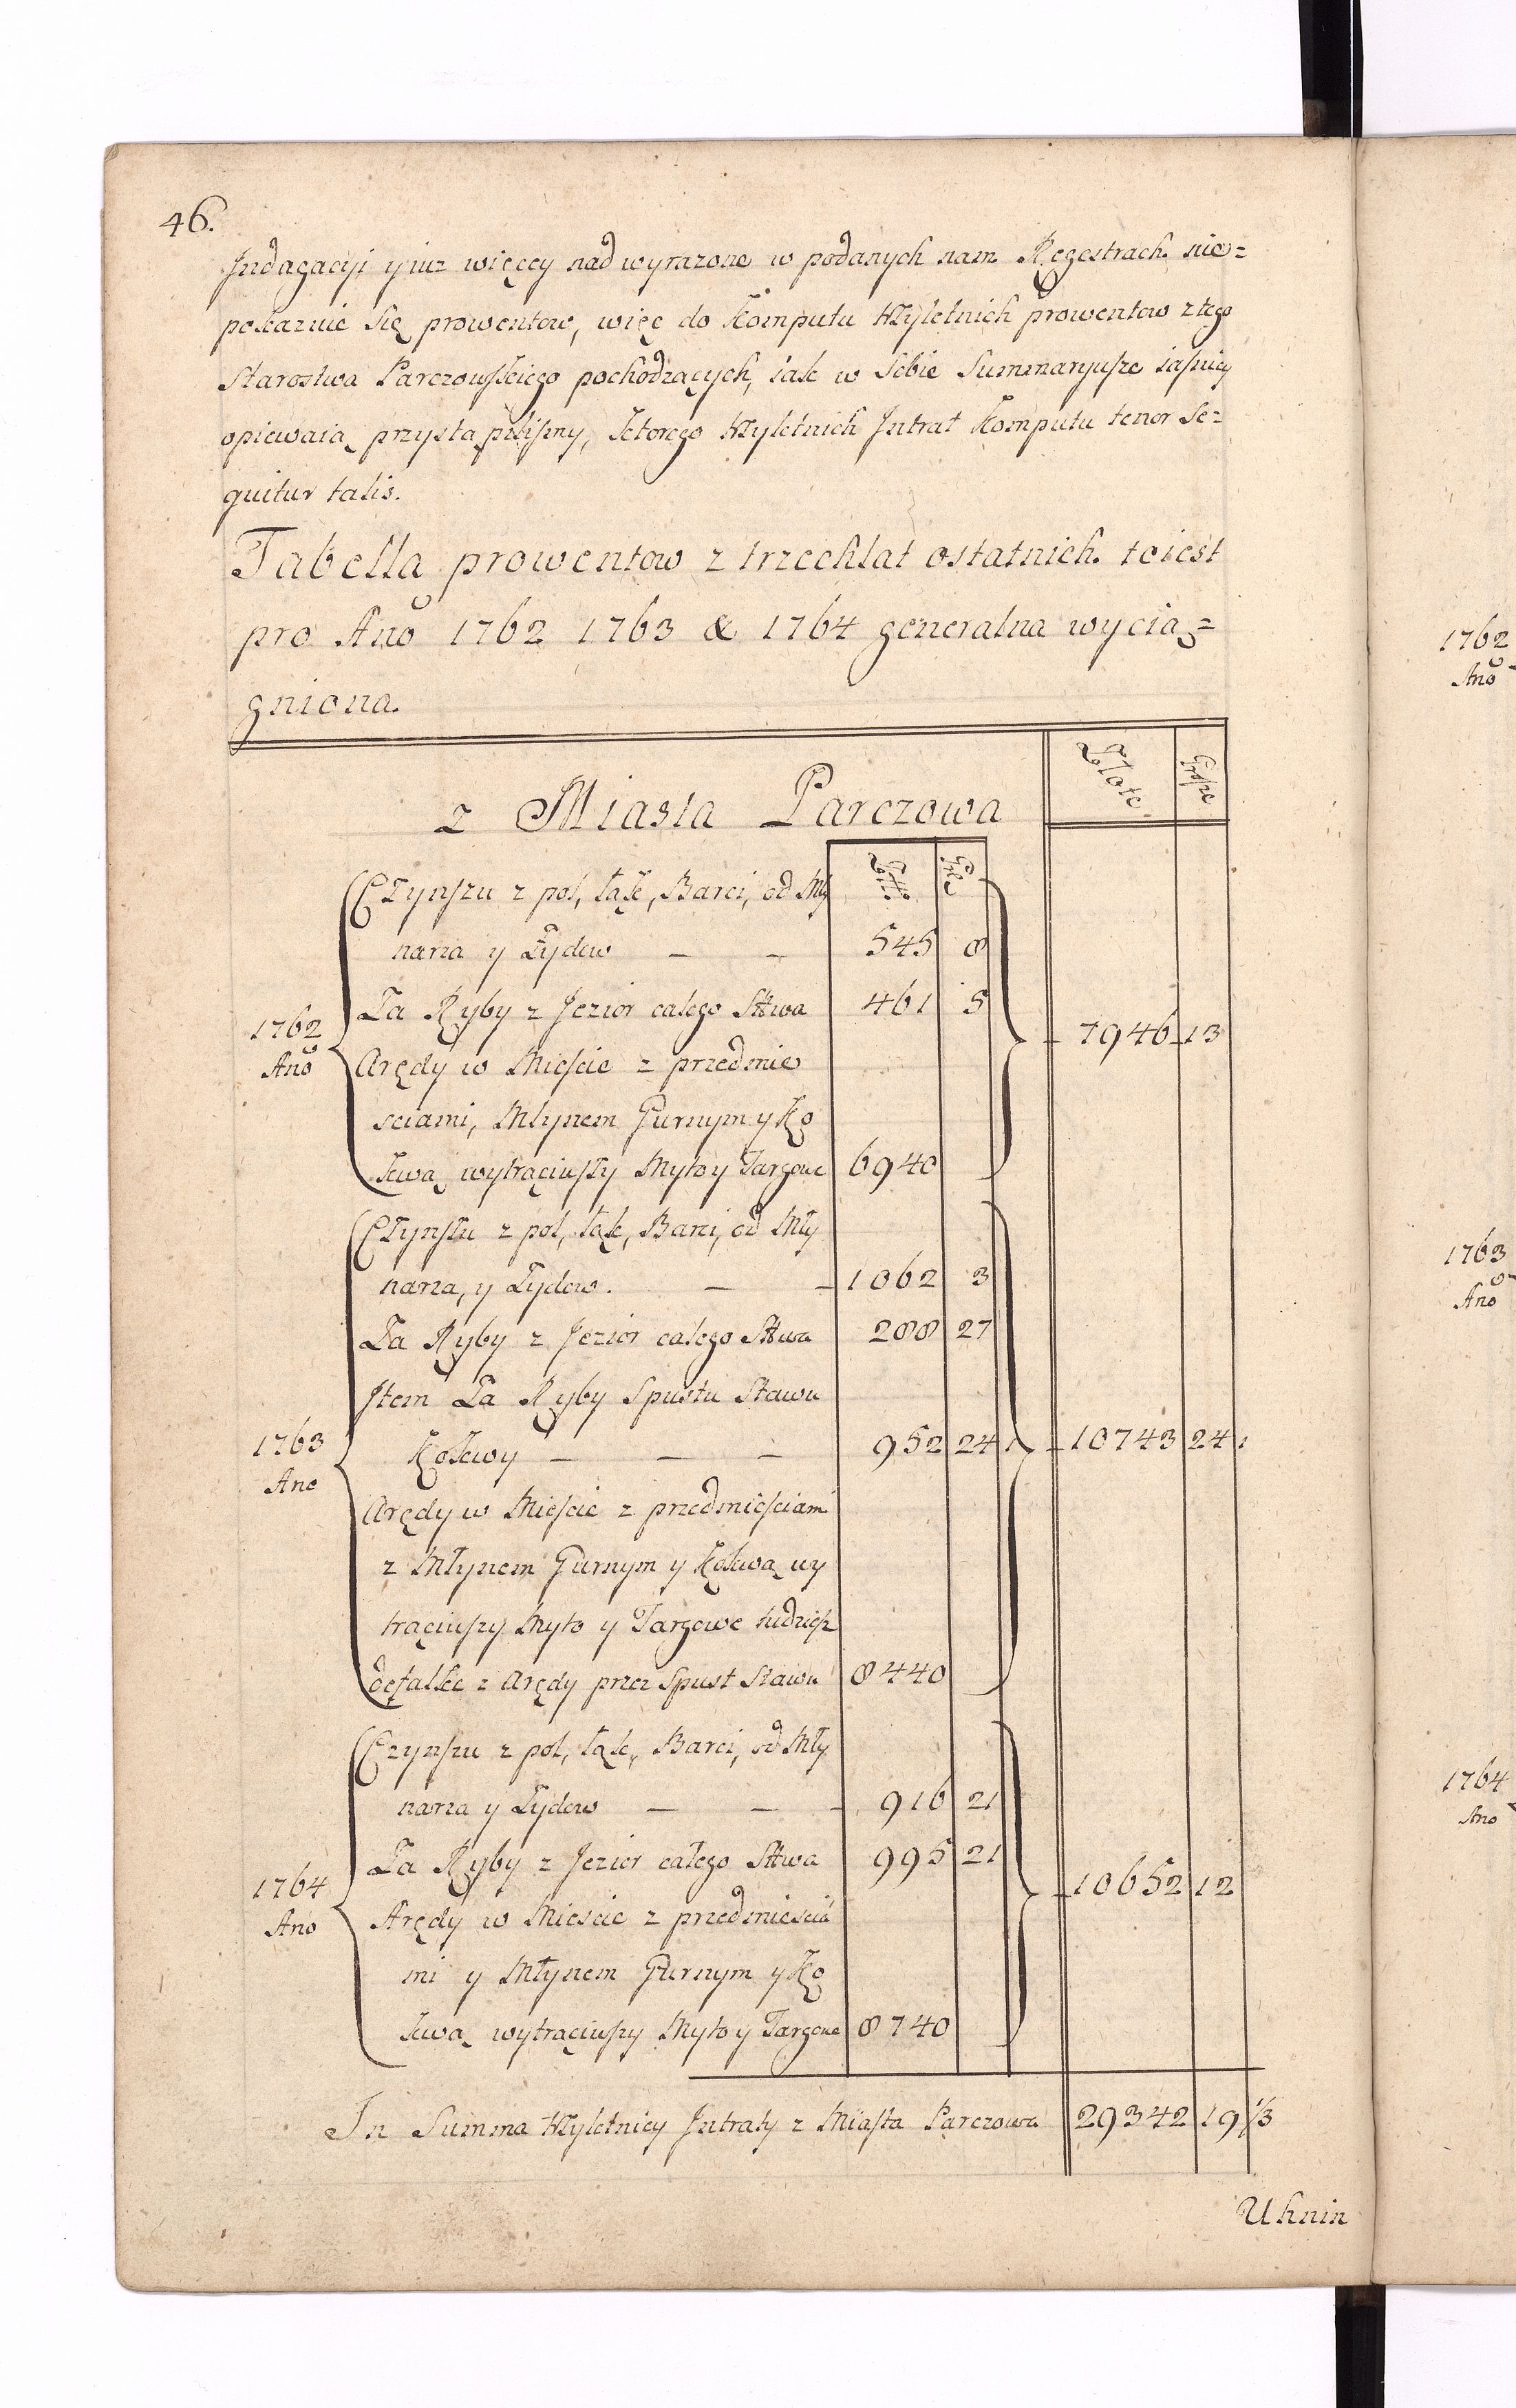 46.
Jndagacyi y iuz więcey nad wyrazone w podanych nam Regestrach. nie=
pokazuie się prowentow, więc do Komputu trzyletnich prowentow z tego
Starostwa Parczowskiego pochodzących, iak w sobie Summaryusze iasniey
opiewaią przystąpilismy, ktorego trzyletnich Jntrat Komputu tenor se=
quitur talis.
Tabella prowentow z trzech lat ostatnich. to iest
pro Año 1762 1763 & 1764 generalna wycią=
gniona.
Złote Grosze
z Miasta Parczowa
Czynszu z pol, łąk, Barci, od Mły
narza y Żydow — — 545 8
Za Ryby z Jezior całego Sttwa 461 5
1762 Año
Arędy w Miescie z przedmie
sciami, Młynem Gurnym y Ko
łewą wytrąciwszy Myto y Targowe 6940
7946 13
Czynszu z pol, łąk, Barci, od Mły
narza, y Żydow. — — 1062 3
Za Ryby z Jezior całego Sttwa 288 27
Jtem Za Ryby Spustu Stawu
1763 Ano
— — — 952 24 1
10743 24 1
Arędy w Miescie z przedmiesciami
z Młynem Gurnym y wy
trąciwszy Myto y Targowe tudziesz
defalkę z Arędy przez Spust Stawu 8440
Czynszu z pol, łąk, Barci, od Mły
narza y Żydow — — — 916 21
Za Ryby z Jezior całego Sttwa 995 21
1764 Ano
10652 12
Arędy w Miescie z przedmiescia
mi y Młynem Gurnym y Ko
łewą wytrąciwszy Myto y Targowe 8740
Jn Summa trzyletniey Jntraty z Miasta Parczowa 29342 19 1/3
Uhnin
1762
Año
1763
Año
1764
Ano